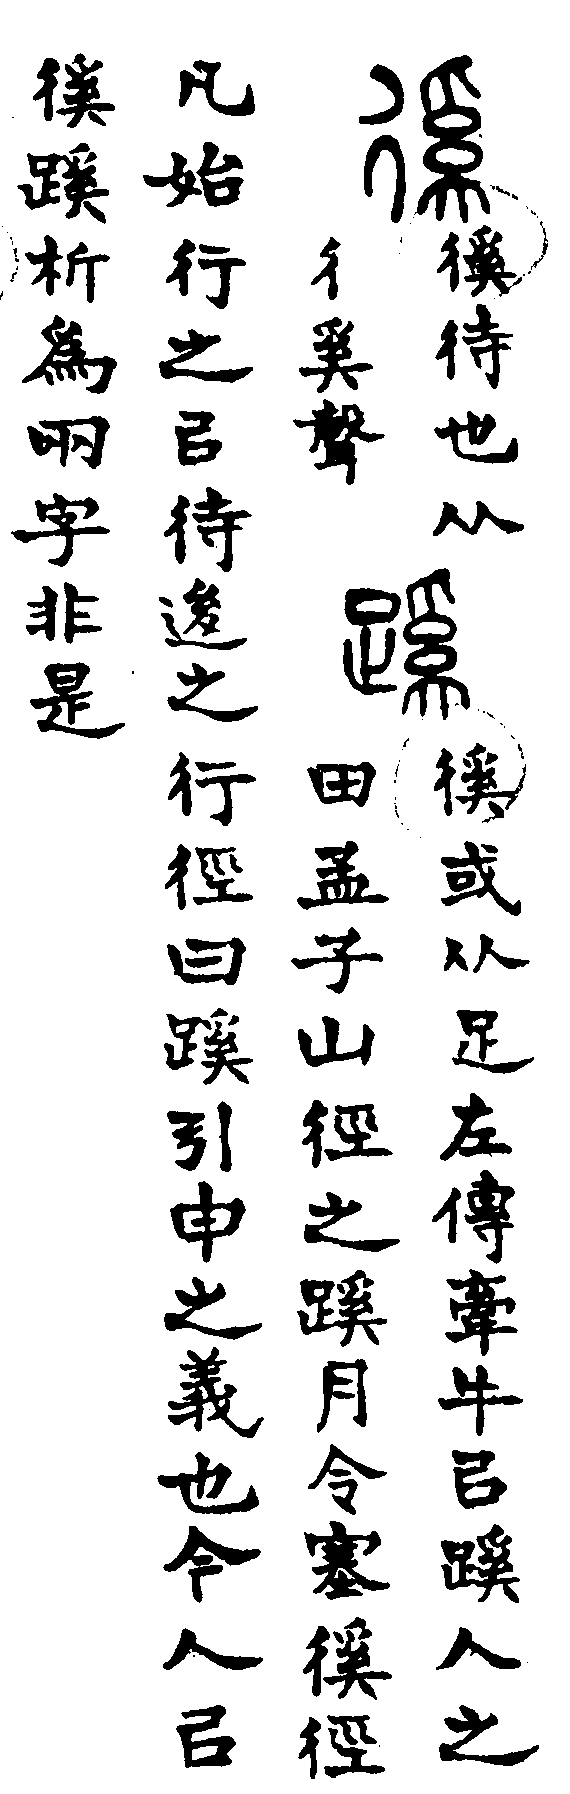 徯
徯待也从
彳奚聲
蹊
徯或从足左傳牽牛㠯蹊人之
田孟子山徑之蹊月令塞徯徑
凡始行之㠯待𨒥之行徑曰蹊引申之義也今人㠯
徯蹊析爲㒳字非是